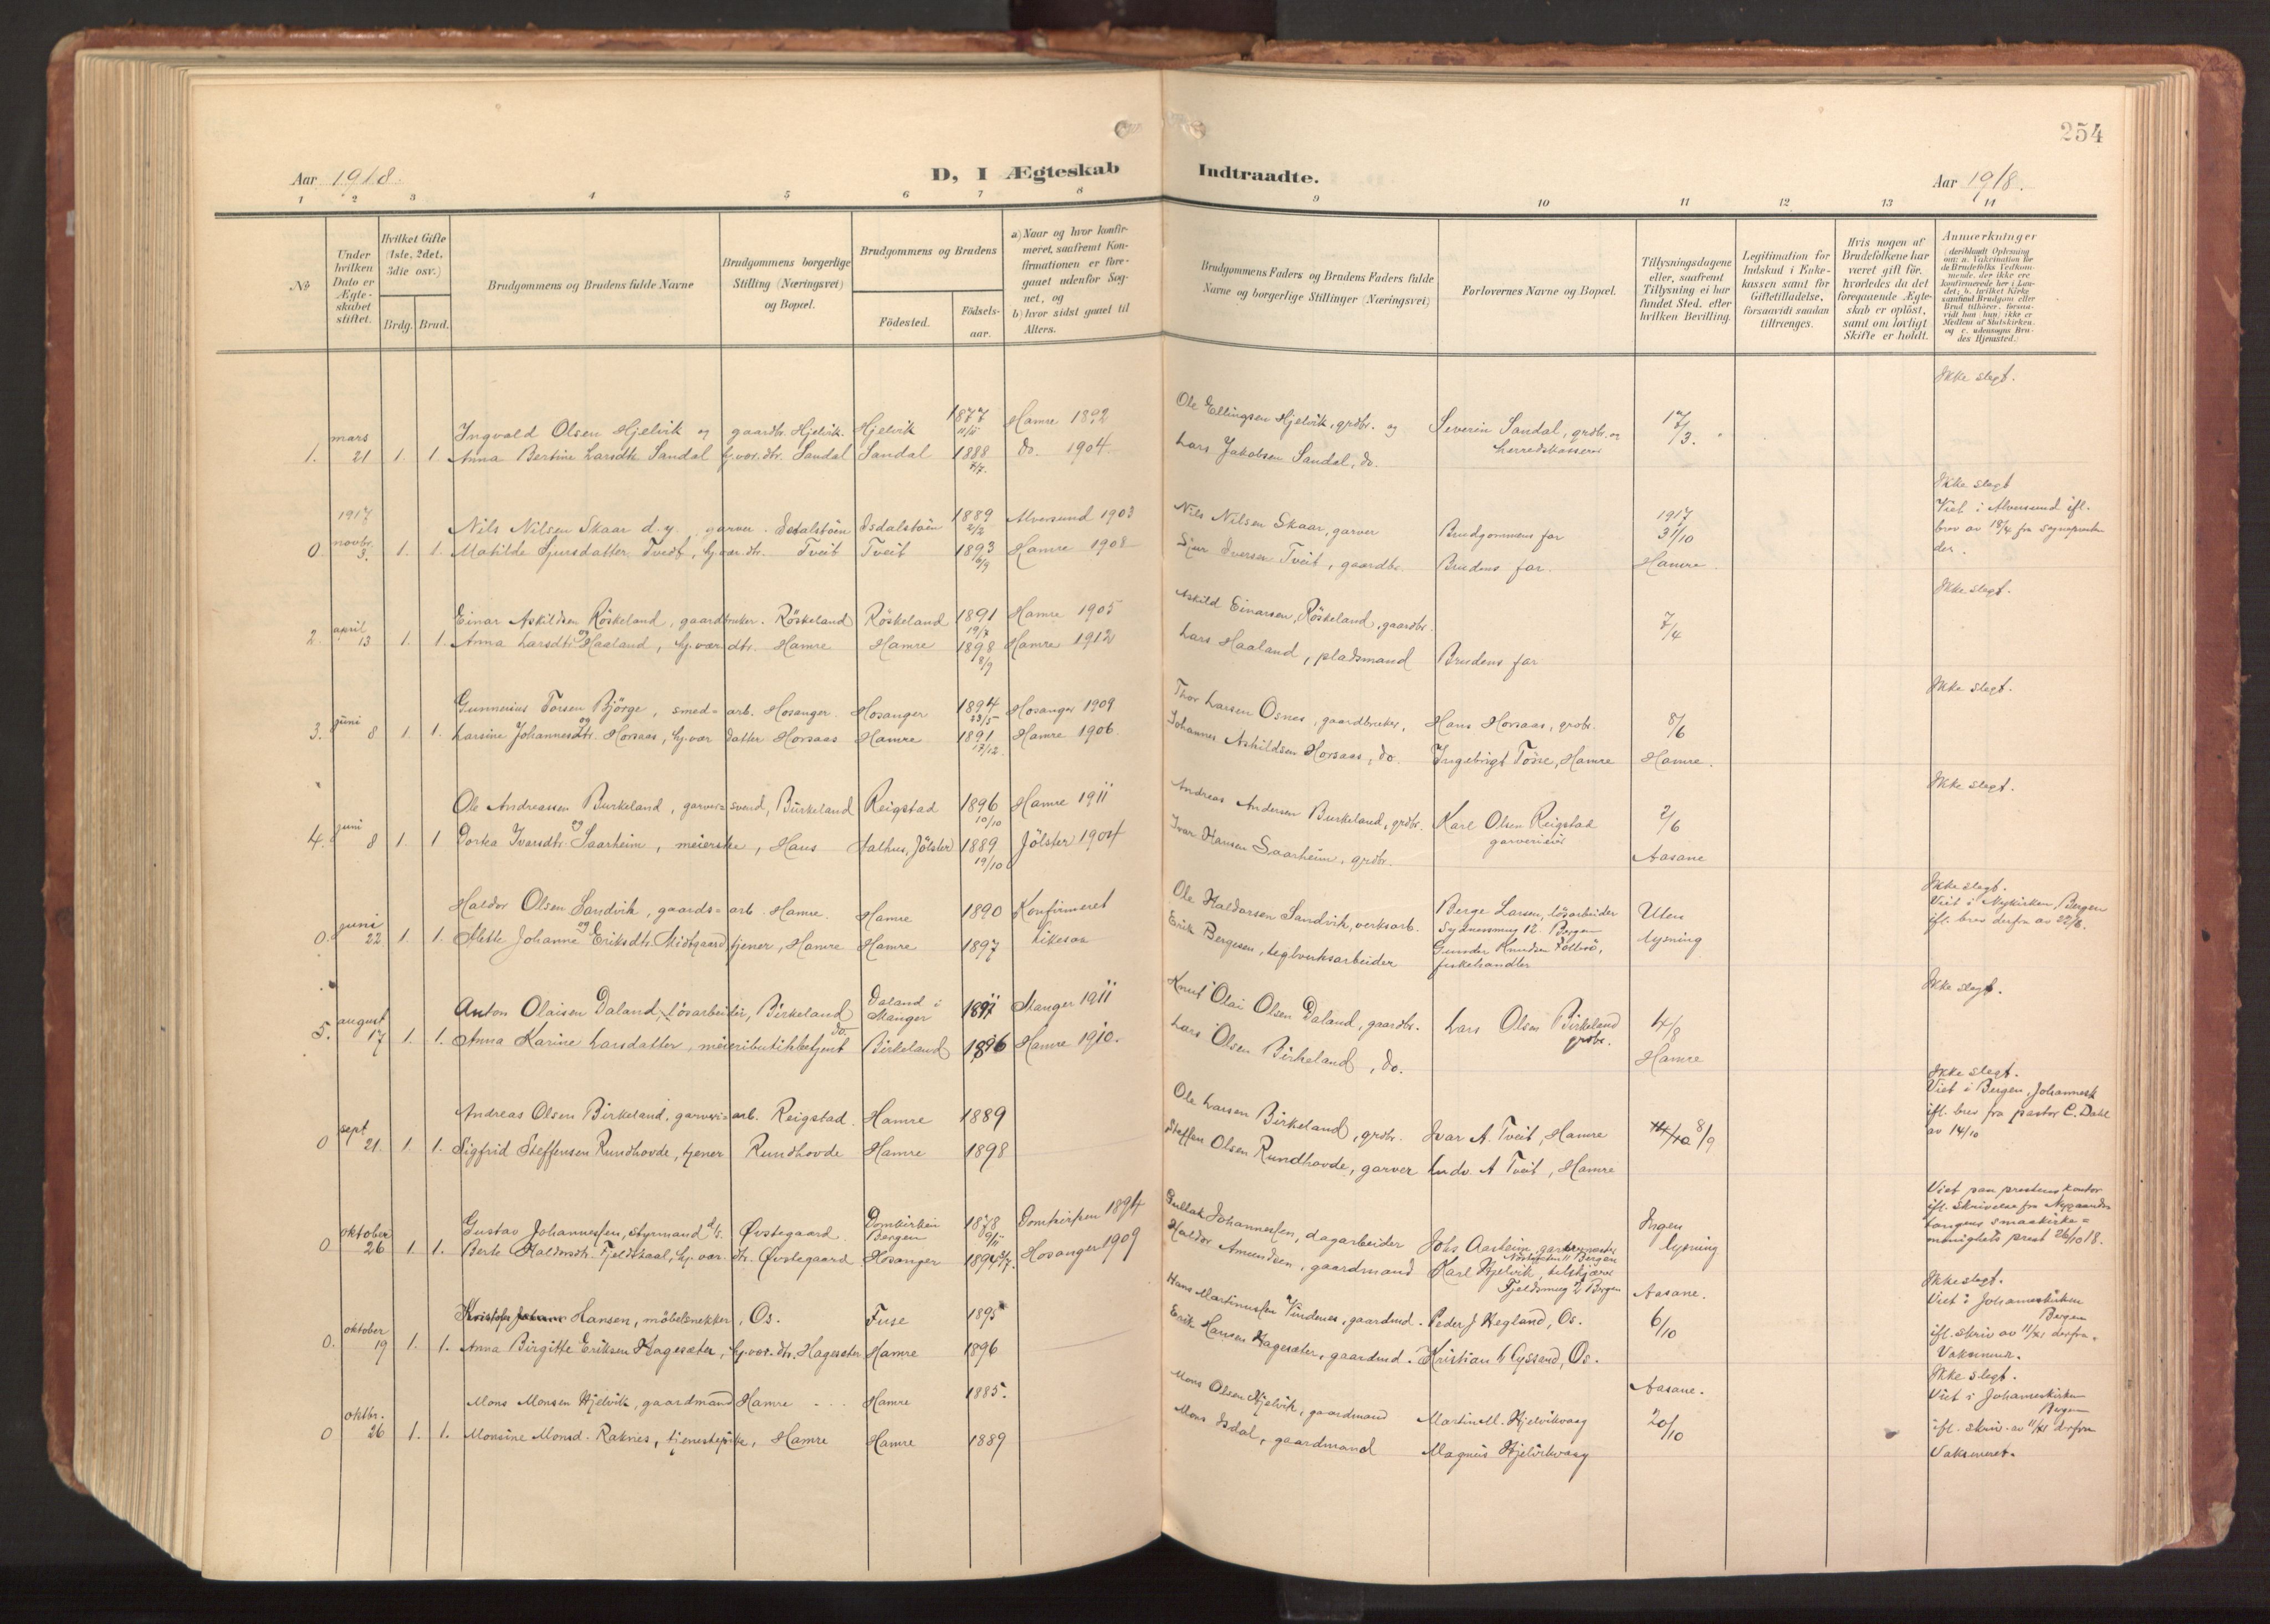 254
D, I Ægteskab Indtraadte.
Aar 1918.
Aar 1918.
1 2 3 4 5 6 7 8 9 10 11 12 13 14
№
Under hvilken Dato er Ægteskabet stiftet.
Hvilket Gifte (1ste, 2det, 3die osv.)
Brdg. Brud.
Brudgommens og Brudens fulde Navne
Brudgommens borgerlige Stilling (Næringsvei) og Bopæl.
Brudgommens og Brudens
Födested.
Födsels-aar.
a) Naar og hvor konfirmeret, saafremt Konfirmationen er foregaaet udenfor Sognet, og
b) hvor sidst gaaet til Alters.
Brudgommens Faders og Brudens Faders fulde Navne og borgerlige Stillinger (Næringsvei)
Forlovernes Navne og Bopæl.
Tillysningsdagene eller, saafremt Tillysning ei har fundet Sted, efter hvilken Bevilling.
Legitimation for Indskud i Enkekassen samt for Giftetilladelse, forsaavidt saadan tiltrænges.
Hvis nogen af Brudefolkene har været gift för, hvorledes da det foregaaende Ægteskab er oplöst, samt om lovligt Skifte er holdt.
Anmærkninger (deriblandt Oplysning om: a. Vakcination for de Brudefolks Vedkommende, der ikke ere konfirmerede her i Landet; b. hvilket Kirkesamfund Brudgom eller Brud tilhörer, forsaavidt han (hun) ikke er Medlem af Statskirken, og c. udensogns Brudes Hjemsted.)
Ikke slegt.
Ingvald Olsen Hjelvik og gaardbr. Hjelvik. Hjelvik 1877 11/11 Hamre 1892 Ole Ellingsen Hjelvik, grdbr. og Severin Sandal, grdbr. og herredskasserer 17/3.
1. mars 21 1. 1. Anna Bertine Larsdtr. Sandal hj.vær. dtr. Sandal Sandal 1888 do. 1904. Lars Jakobsen Sandal, do.
Ikke slegt
Viet i Alversund ifl. brev av 18/4 fra sognepresten der.
1917 Nils Nilsen Skaar d.y. garver. Isdalstöen Isdalstöen 1889 2/2 Alversund 1903 Nils Nilsen Skaar, garver Brudgommens far 1917 31/10
0. novbr. 3. 1. 1. Matilde Sjursdatter Tveit, hj.vær. dtr. Tveit Tveit 1893 6/9 Hamre 1908 Sjur Iversen Tveit, gaardbr. Brudens far. Hamre.
Ikke slegt.
Einar Askildsen Röskeland, gaardbruker. Röskeland Röskeland 1891 19/7 Hamre 1905 Askild Einarsen Röskeland, gaardbr. 7/4
2. april 13 1. 1. og Anna Larsdtr. Haaland, hj.vær dtr. Hamre Hamre 1898 8/9 Hamre 1912 Lars Haaland, pladsmand Brudens far
Ikke slegt.
Gunnerius Torsen Björge, smed=arb. Hosanger. Hosanger 1894 23/5 Hosanger 1909 Thor Larsen Osnes, gaardbruker, Hans Horsaas, grdbr. 8/6
3. juni 8 1. 1. og Larsine Johannesdtr. Horsaas, hj.vær datter Horsaas Hamre 1891 17/12. Hamre 1906. Johannes Askildsen Horsaas, do. Ingebrigt Tösse, Hamre Hamre.
Ikke slegt.
Ole Andreassen Burkeland, garver=svend, Burkeland Reigstad 1896 10/10 Hamre 1911 Andreas Andersen Burkeland, grdbr. Karl Olsen Reigstad garverieier 2/6
4. juni 8 1. 1 og Dorka Ivarsdtr. Saarheim, meierske, Haus Aalhus, Jölster 1889 19/10 Jölster 1904 Ivar Hansen Saarheim, grdbr. Aasane
Ikke slegt.
Viet i Nykirken, Bergen ifl. brev derfra av 22/6.
Haldor Olsen Sandvik, gaards=arb. Hamre. Hamre 1890 Konfirmeret Ole Haldorsen Sandvik, verksarb. Berge Larsen, lösarbeider Sydnesmug 12. Bergen Uten
0. juni 22 1. 1. og Mette Johanne Eriksdtr. Midtgaard tjener, Hamre Hamre 1897 likesaa Erik Bergesen, teglverksarbeider Gunder Knudsen fiskehandler lysning
Ikke slegt.
Anton Olaisen Daland, lösarbeider, Birkeland Daland i Manger Manger 1911 Knut Olai Olsen Daland, gaardbr. Lars Olsen Birkeland grdbr. 4/8
5. august 17 1. 1. Anna Karine Larsdatter, meieributikbetjent do. Birkeland 1896 Hamre 1910. Lars Olsen Birkeland, do. Hamre
Ikke slegt.
Viet i Bergen, Johannesk ifl. brev fra pastor C. Dahl av 14/10
Andreas Olsen Birkeland, garveri=arb. Reigstad. Hamre 1889 Ole Larsen Birkeland, grdbr. Ivar A. Tveit, Hamre 8/9
0 sept 21. 1. 1. Sigfrid Steffensen Rundhovde, tjener Rundhovde Hamre 1898 Steffen Olsen Rundhovde, garver Ludv. A Tveit, Hamre
Viet paa prestens kontor ifl. skrivelse fra smaakirke=menighets prest 26/10 18.
Gustav Johannessen, styrmand d/s. Øvstegaard Domkirken Bergen 1878 9/11 Domkirken 1894 Gullak Johannessen, dagarbeider Johs Aasheim, Bergen Ingen
0 oktober 26 1 1. Berte Haldorsdtr. Fjeldskaal, hj. vær. dtr. Øvstegaard Hosanger 1894 Hosanger 1909 Haldor Amundsen, gaardmand Karl Hjelvik, Fjeldsmug 2 Bergen lysning
Aasane.
Ikke slegt.
Viet i Johanneskirken Bergen ifl. skriv av 11/11 derfra. Vaksinert.
Kristofer Hansen, möbelsnekker, Os. Fuse 1895 Hans Martinussen Vindenes, gaardmd. Peder J Hegland, Os. 6/10
0. oktober 19 1. 1. Anna Birgitte Eriksen Hagesæter, hj.vær. dtr. Hagesæter Hamre 1896 Erik Hansen Hagesæter, gaardmd. Kristian Lyssand, Os.
Aasane.
Ikke slegt.
Viet i Johanneskirken Bergen ifl. skriv. av 11/11 derfra Vaksineret.
Mons Monsen Hjelvik, gaardmand Hamre Hamre 1885. Mons Olsen Hjelvik, gaardmand Martin M. Hjelvikvaag 20/10
0 oktbr. 26 1. 1. Monsine Monsd. Raknes, tjenestepike, Hamre Hamre 1889 Mons Isdal, gaardmand Magnus Hjelvikvaag